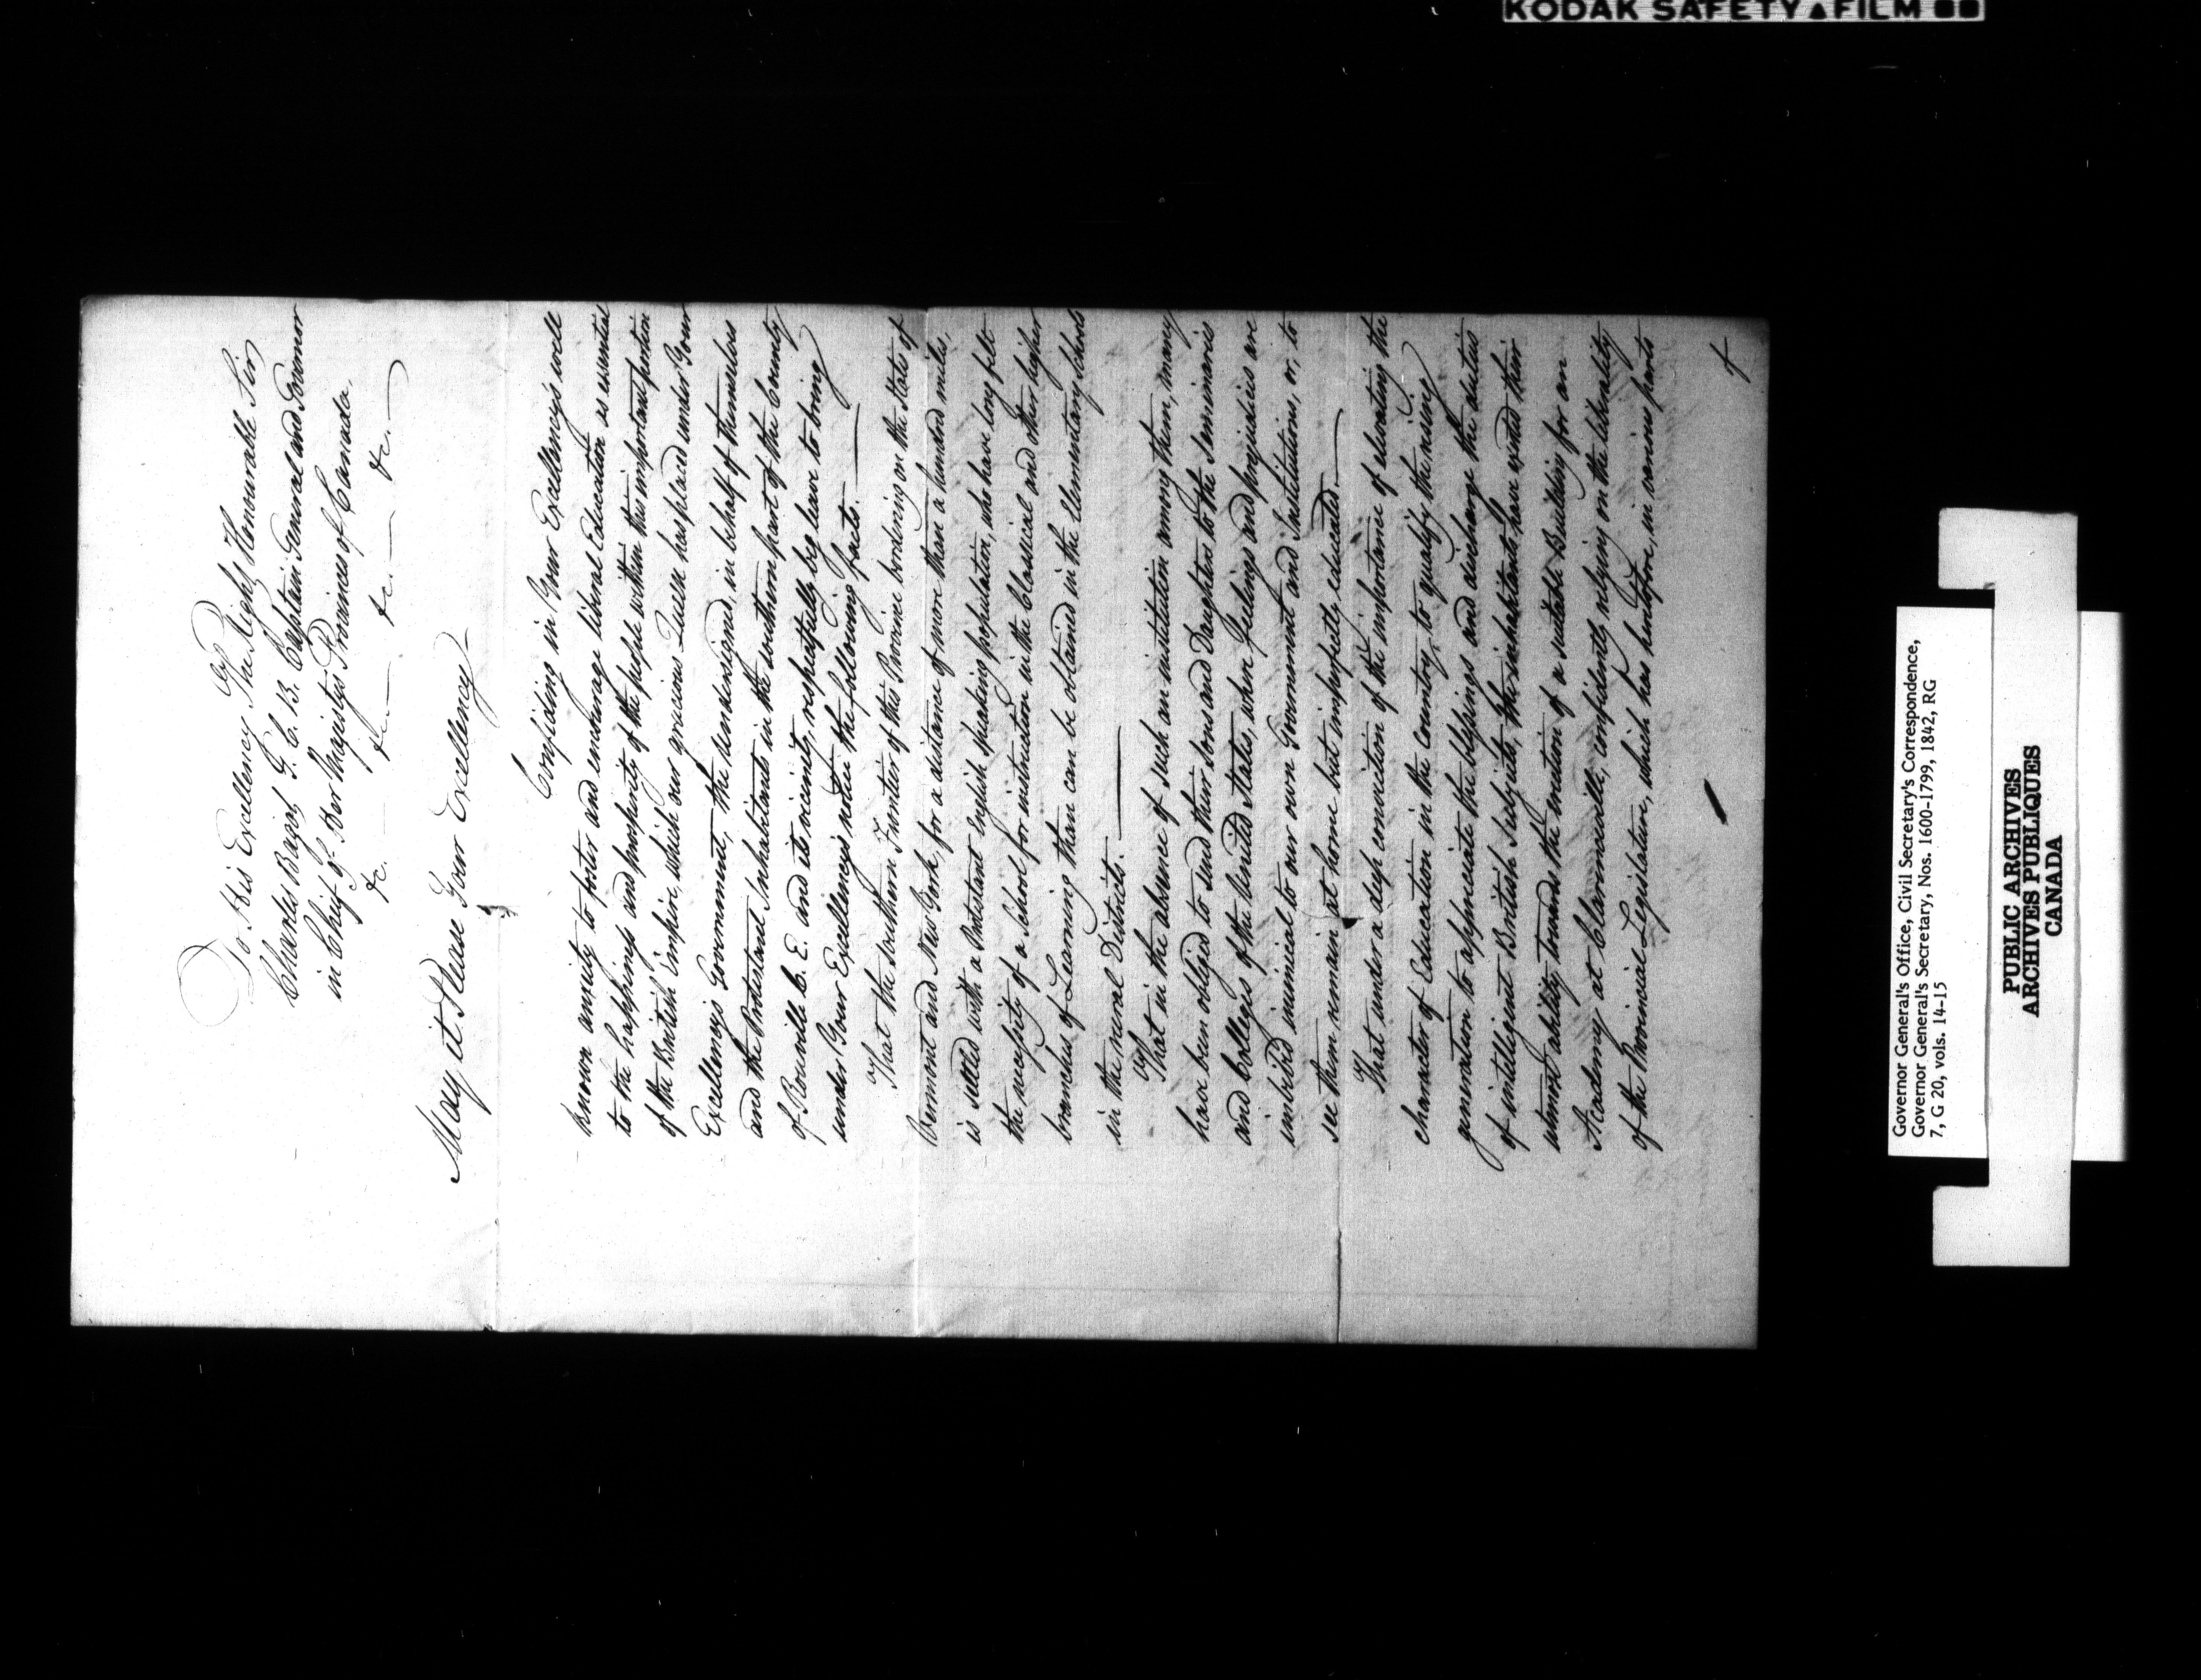 KODAK SAFETY ▲ FILM ■■
To His Excellency The Right Honourable Sir
Charles Bagot, G. C. B. Captain General and Governor
in Chief of Her Majestys Provinces of Canada.
&c. — &c — &c. — &c. —
May it Please Your Excellency
Confiding in Your Excellency's well
known anxiety to foster and encourage liberal Education as essential
to the happiness and prosperity of the people within this important portion
of the British Empire, which our gracious Queen has placed under Your
Excellency's Government, the undersigned, in behalf of themselves
and the Protestant Inhabitants in the southern part of the County
of Rouville C. E. and its vicinity, respectfully beg leave to bring
under Your Excellency's notice the following facts. —
That the southern Frontier of this Province bordering on the States of
Vermont and New York, for a distance of more than a hundred miles,
is settled with a Protestant english speaking population, who have long felt
the necessity of a School for instruction in the classical and other higher
branches of Learning than can be obtained in the elementary schools
in the rural Districts. —
That in the absence of such an institution among them, many
have been obliged to send their sons and Daughters to the Seminaries
and Colleges of the United States, where feelings and prejudices are
imbibed inimical to our own Government and Institutions, or, to
see them remain at home but imperfectly educated. —
That under a deep conviction of the importance of elevating the
character of Education in the Country, to qualify the rising
generation to appreciate the blessings and discharge the duties
of intelligent British Subjects, the inhabitants, have exerted their
utmost ability, towards the erection of a suitable Building for an
Academy at Clarenceville, confidently relying on the liberality
of the Provincial Legislature, which has heretofore, in various parts
of
Governor General's Office, Civil Secretary's Correspondence,
Governor General's Secretary, Nos. 1600-1799, 1842, RG
7, G 20, vols. 14-15
PUBLIC ARCHIVES
ARCHIVES PUBLIQUES
CANADA